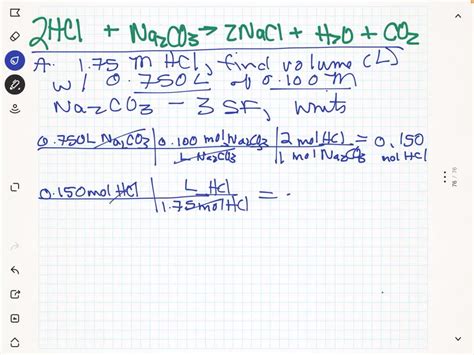 2HCl + Na2CO3 → 2NaCl + H2O + CO2
A. 1.75 M HCl, find volume (L)
w/ 0.750L of 0.100 M
Na2CO3 - 3 SF, units
0.750L Na2CO3 | 0.100 mol Na2CO3 | 2 mol HCl = 0.150
L Na2CO3 | 1 mol Na2CO3 mol HCl
0.150 mol HCl | L HCl =
1.75 mol HCl
76 / 76